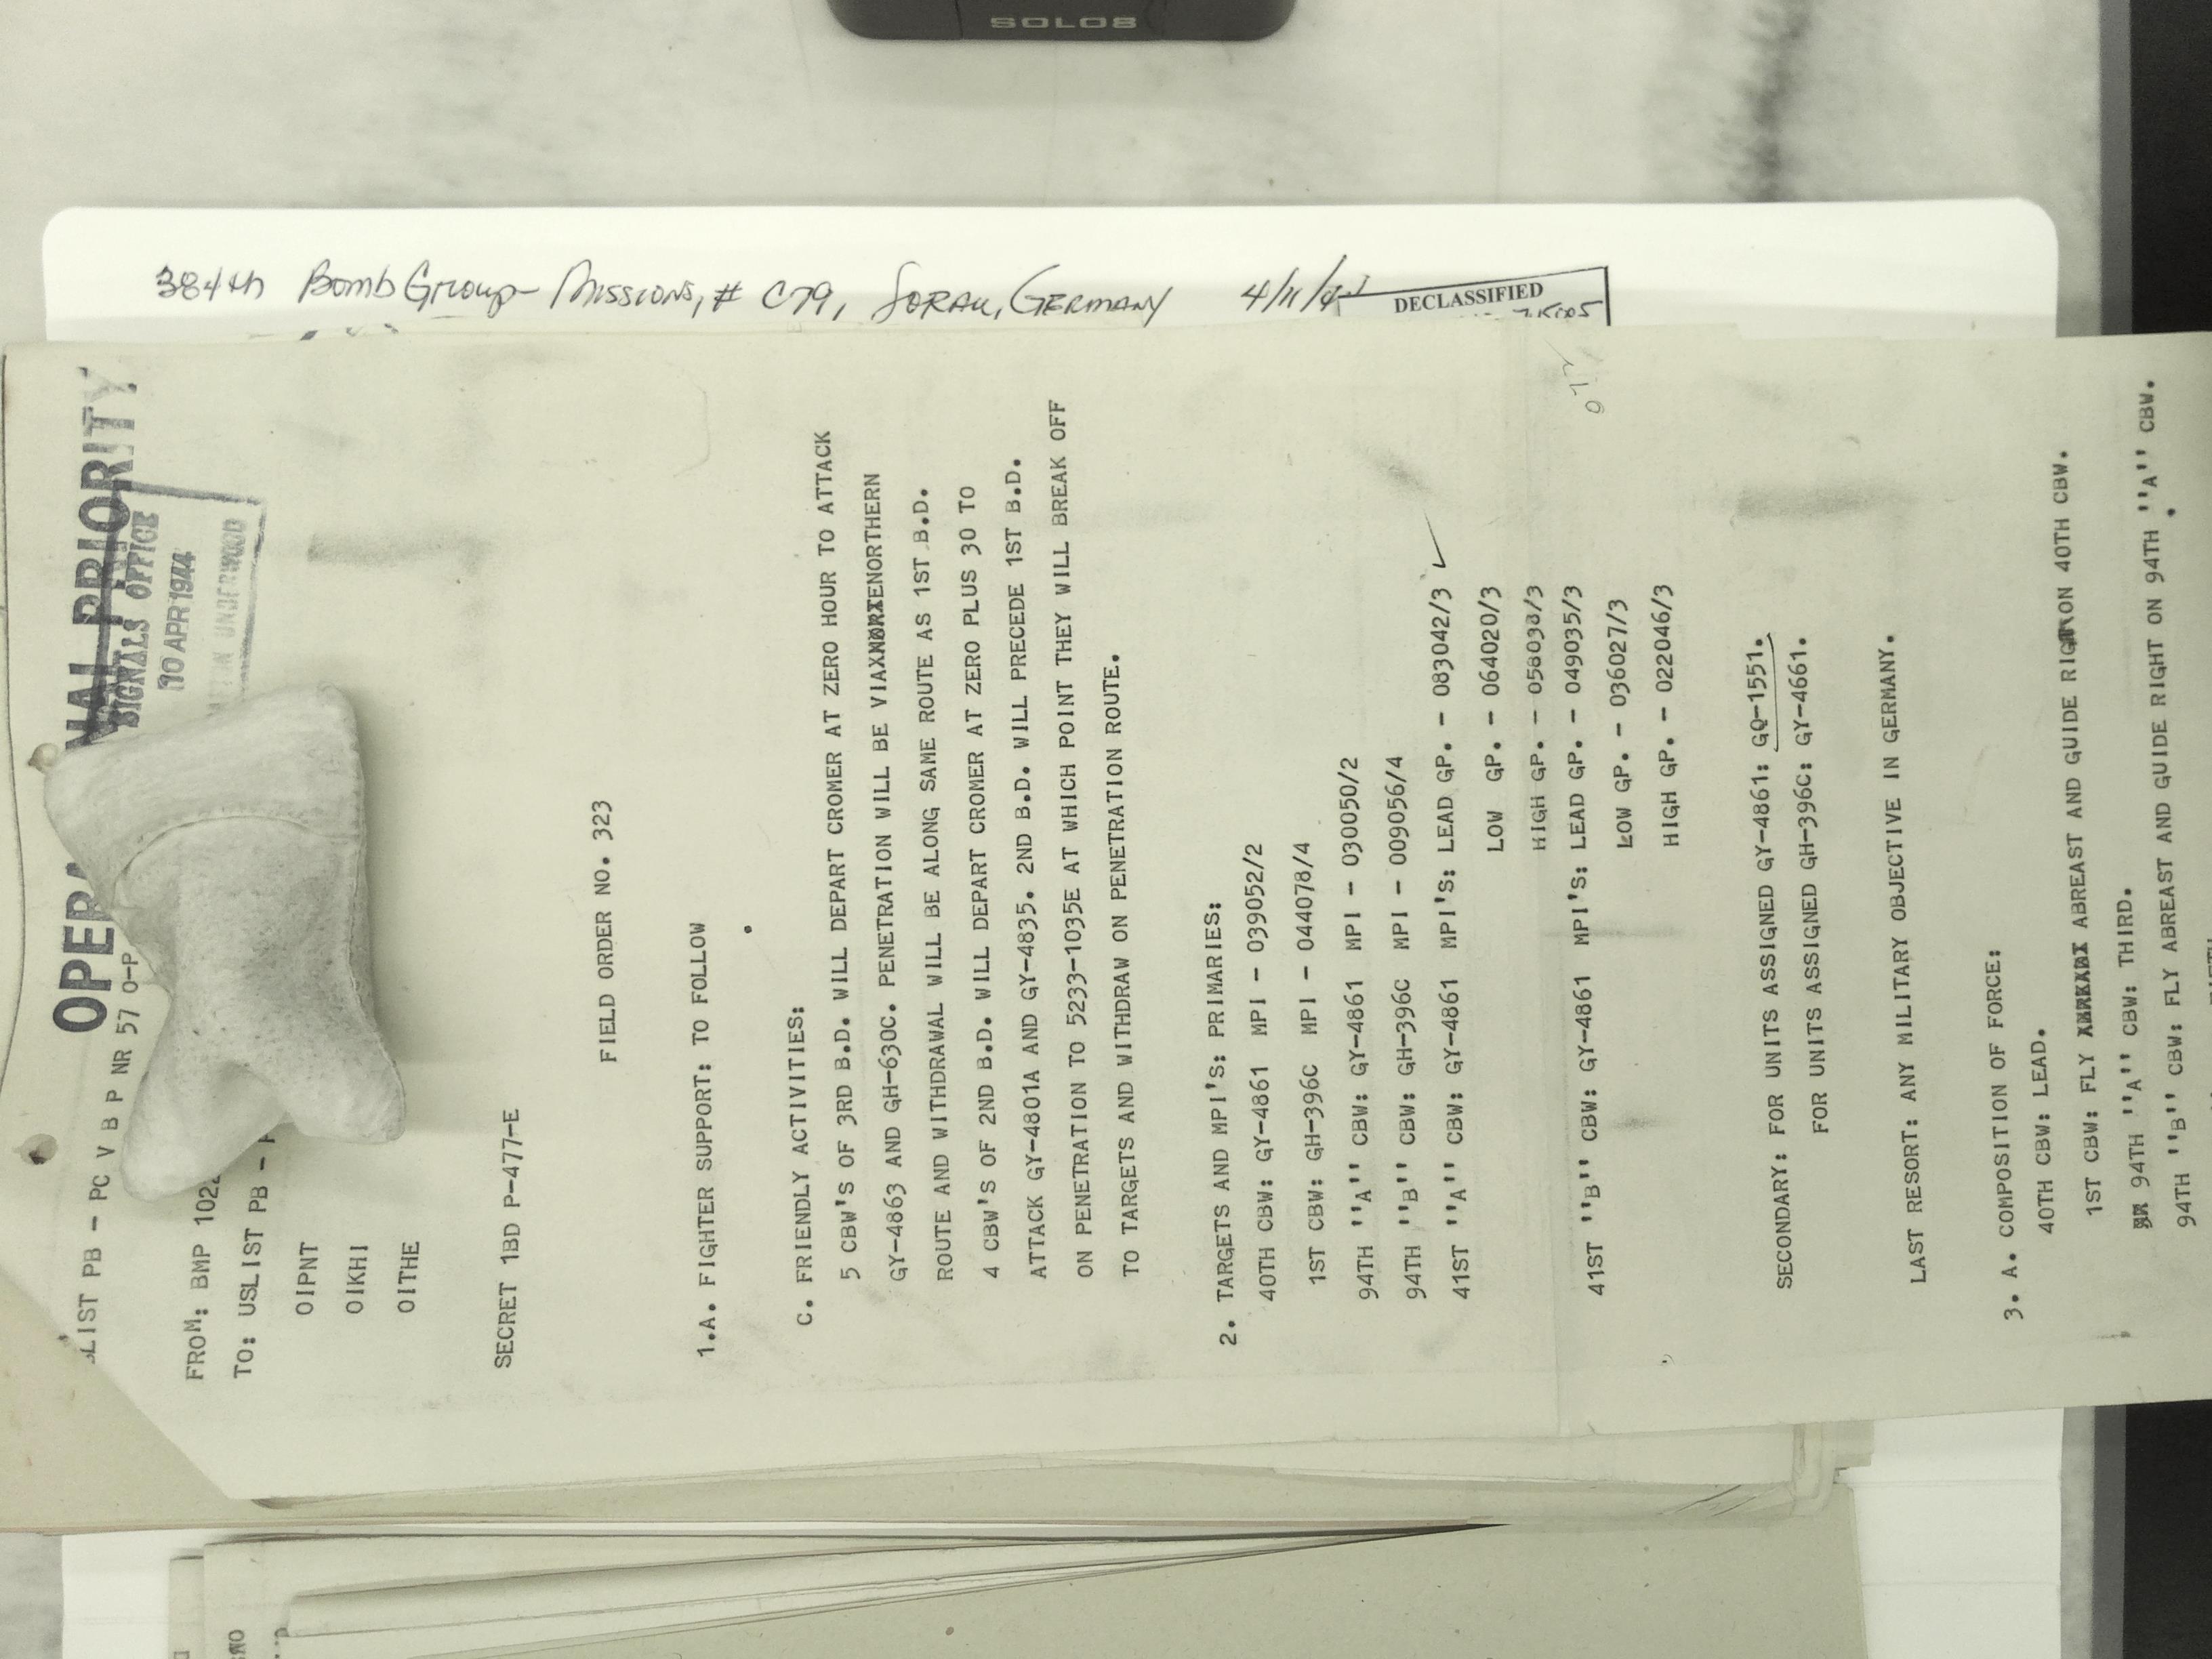 SOLO8
384th Bomb Group - Missions, # C79, SORAU, GERMANY 4/11/
DECLASSIFIED
OPERA NAL PRIORITY
SIGNALS OFFICE
10 APR 1944
UNDERWOOD
LIST PB - PC V B P NR 57 O-P
FROM: BMP 102
TO: USLIST PB -
OIPNT
OIKHI
OITHE
SECRET 1BD P-477-E
FIELD ORDER NO. 323
1.A. FIGHTER SUPPORT: TO FOLLOW
C. FRIENDLY ACTIVITIES:
5 CBW'S OF 3RD B.D. WILL DEPART CROMER AT ZERO HOUR TO ATTACK
GY-4863 AND GH-630C. PENETRATION WILL BE VIA NORTHERN
ROUTE AND WITHDRAWAL WILL BE ALONG SAME ROUTE AS 1ST B.D.
4 CBW'S OF 2ND B.D. WILL DEPART CROMER AT ZERO PLUS 30 TO
ATTACK GY-4801A AND GY-4835. 2ND B.D. WILL PRECEDE 1ST B.D.
ON PENETRATION TO 5233-1035E AT WHICH POINT THEY WILL BREAK OFF
TO TARGETS AND WITHDRAW ON PENETRATION ROUTE.
2. TARGETS AND MPI'S: PRIMARIES:
40TH CBW: GY-4861 MPI - 039052/2
1ST CBW: GH-396C MPI - 044078/4
94TH ''A'' CBW: GY-4861 MPI - 030050/2
94TH ''B'' CBW: GH-396C MPI - 009056/4
41ST ''A'' CBW: GY-4861 MPI'S: LEAD GP. - 083042/3 ✓
LOW GP. - 064020/3
HIGH GP. - 058038/3
41ST ''B'' CBW: GY-4861 MPI'S: LEAD GP. - 049035/3
LOW GP. - 036027/3
HIGH GP. - 022046/3
SECONDARY: FOR UNITS ASSIGNED GY-4861: GQ-1551.
FOR UNITS ASSIGNED GH-396C: GY-4661.
LAST RESORT: ANY MILITARY OBJECTIVE IN GERMANY.
3. A. COMPOSITION OF FORCE:
40TH CBW: LEAD.
1ST CBW: FLY ABREAST AND GUIDE RIGHT ON 40TH CBW.
94TH ''A'' CBW: THIRD.
94TH ''B'' CBW: FLY ABREAST AND GUIDE RIGHT ON 94TH ''A'' CBW.